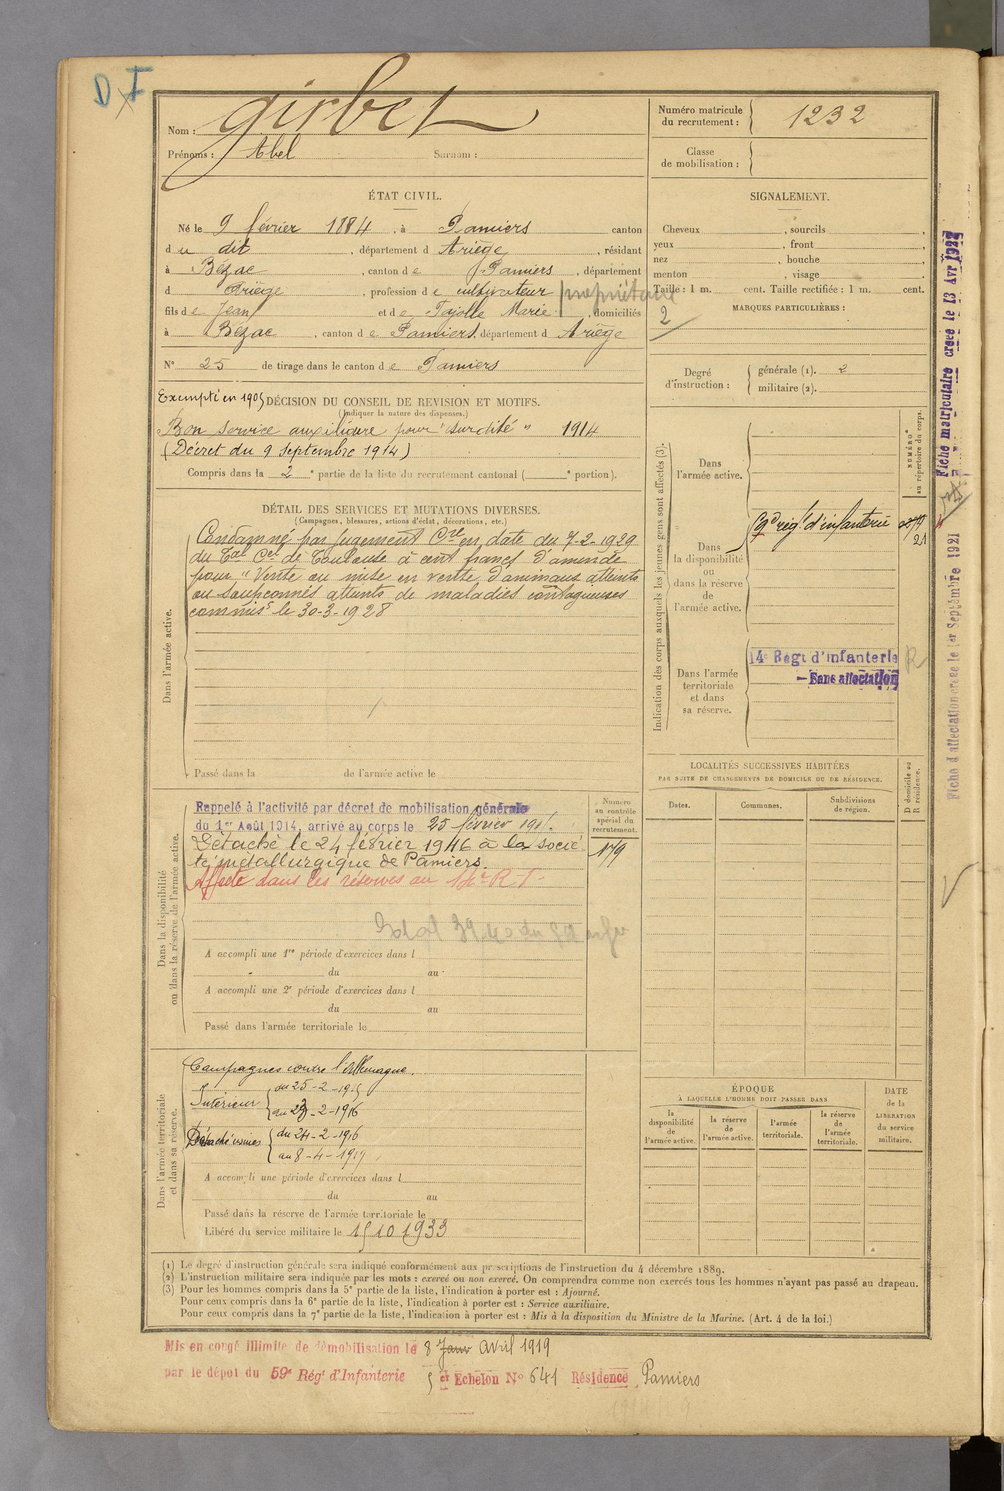 D I
Nom : Girbet
Prénoms : Abel Surnom :
Numéro matricule du recrutement : 1232
Classe de mobilisation :
ÉTAT CIVIL.
Né le 9 février 1884, à Pamiers canton
d u dit, département d Ariège, résidant
à Bézac, canton de Pamiers, département
d Ariège, profession de cultivateur propriétaire
fils de Jean et de Tajolle Marie, domiciliés
à Bézac, canton de Pamiers, département d Ariège
N° 25 de tirage dans le canton de Pamiers
SIGNALEMENT.
Cheveux , sourcils ,
yeux , front ,
nez , bouche ,
menton , visage .
Taille : 1 m. cent. Taille rectifiée : 1 m. cent.
MARQUES PARTICULIÈRES :
2
Degré d'instruction : générale (1). 2
militaire (2).
Exempté en 1905 DÉCISION DU CONSEIL DE REVISION ET MOTIFS.
(Indiquer la nature des dispenses.)
Bon service auxiliaire pour "surdité" 1914
(Décret du 9 septembre 1914)
Compris dans la 2e partie de la liste du recrutement cantonal ( e portion).
DÉTAIL DES SERVICES ET MUTATIONS DIVERSES.
(Campagnes, blessures, actions d'éclat, décorations, etc.)
Dans l'armée active.
Condamné par jugement Cre en date du 7-2-1929
du Tal Cel de Toulouse à cent francs d'amende
pour "Vente ou mise en vente d'animaux atteints
ou soupçonnés atteints de maladies contagieuses
commis" le 30-3-1928
Passé dans la de l'armée active le
Indication des corps auxquels les jeunes gens sont affectés (3).
NUMÉROS au répertoire du corps.
Dans l'armée active.
Dans la disponibilité ou dans la réserve de l'armée active.
régt d'infanterie
Dans l'armée territoriale et dans sa réserve.
14e Régt d'infanterie R
— Sans affectation
Fiche matriculaire créée le 13 Avr 1927
Fiche d'affectation créée le 1er Septembre 1921
LOCALITÉS SUCCESSIVES HABITÉES
PAR SUITE DE CHANGEMENTS DE DOMICILE OU DE RÉSIDENCE.
D domicile ou R résidence.
Dates. Communes. Subdivisions de région.
Dans la disponibilité ou dans la réserve de l'armée active.
Numéro au contrôle spécial du recrutement.
Rappelé à l'activité par décret de mobilisation générale
du 1er Août 1914, arrivé au corps le 25 février 1915.
Détaché le 24 février 1916 à la socié
té métallurgique de Pamiers.
Affecté dans les réserves au 14e R.I.
179
A accompli une 1re période d'exercices dans l
du au
A accompli une 2e période d'exercices dans l
du au
Passé dans l'armée territoriale le
Dans l'armée territoriale et dans sa réserve.
Campagnes contre l'Allemagne.
Intérieur du 25-2-1915
au 23-2-1916
Détaché usines du 24-2-1916
au 8-4-1919
A accompli une période d'exercices dans l
du au
Passé dans la réserve de l'armée territoriale le
Libéré du service militaire le 15 10 1933
ÉPOQUE
À LAQUELLE L'HOMME DOIT PASSER DANS
la disponibilité de l'armée active. la réserve de l'armée active. l'armée territoriale. la réserve de l'armée territoriale.
DATE de la LIBÉRATION du service militaire.
(1) Le degré d'instruction générale sera indiqué conformément aux prescriptions de l'instruction du 4 décembre 1889.
(2) L'instruction militaire sera indiquée par les mots : exercé ou non exercé. On comprendra comme non exercés tous les hommes n'ayant pas passé au drapeau.
(3) Pour les hommes compris dans la 5e partie de la liste, l'indication à porter est : Ajourné.
Pour ceux compris dans la 6e partie de la liste, l'indication à porter est : Service auxiliaire.
Pour ceux compris dans la 7e partie de la liste, l'indication à porter est : Mis à la disposition du Ministre de la Marine. (Art. 4 de la loi.)
Mis en congé illimité de démobilisation le 8 Janv Avril 1919
par le dépot du 59e Régt d'Infanterie 5 er Echelon N° 641 Résidence Pamiers